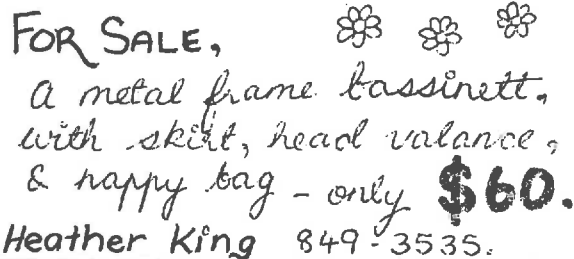 FOR SALE,
A metal frame bassinett,
with skirt, head valance,
& nappy bag - only $60.
Heather King 849-3535.